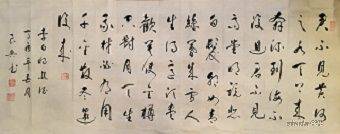 君不見黄河
之水天上来
奔流到海不
復回君不見
高堂明鏡悲
白髮朝如青
絲暮成雪人
生得意須盡
歡莫使金樽
空對月天生
我材必有用
千金散盡還
復来
李白将進酒